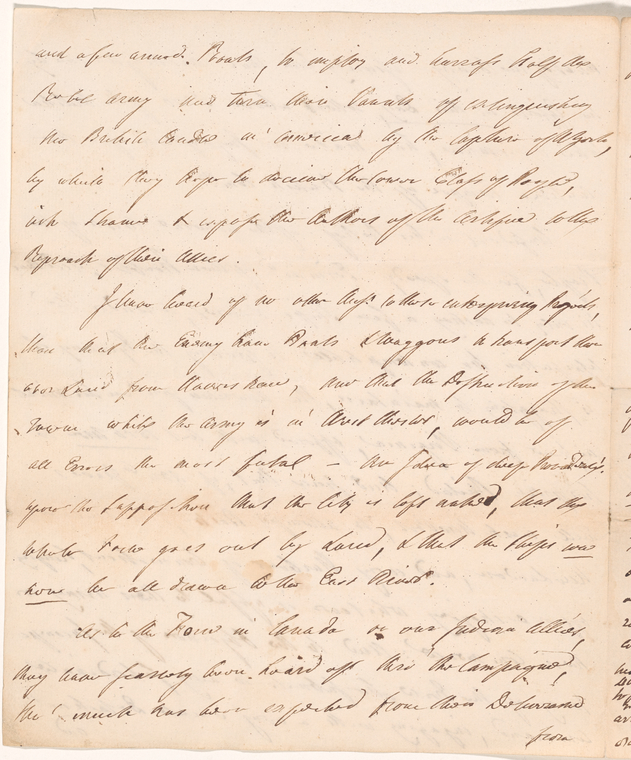 and a few armed Boats, to employ and harrass half the
Rebel army and turn their Vaunts of extinguishing
the British Power in America by the Capture of N York,
by which they hope to deceive the lower Class of People,
into Shame & expose the Authors of the Artifice to the
Reproach of their Allies.
I have heard of no other to these enterprising
than that the Enemy have Boats & waggons to transport them
over Land from and that the Destruction of the
Town whilst the Army is in West Chester, would be of
all Errors the most fatal — An Idea of deep
upon the Supposition that the City is left naked, that the
whole Force goes out by Land, & that the Ships was
now be all drawn to the East River.
As to the Force in Canada or our Indian Allies,
they have scarcely been heard of this the Campaign,
tho' much has been expected from their Deliverance
from